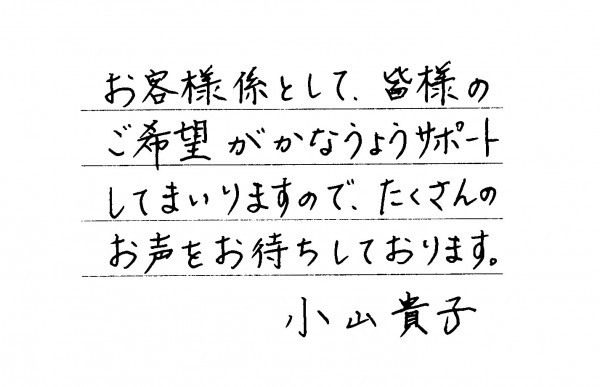 お客様係として、皆様の
ご希望がかなうようサポート
してまいりますので、たくさんの
お声をお待ちしております。
小山貴子